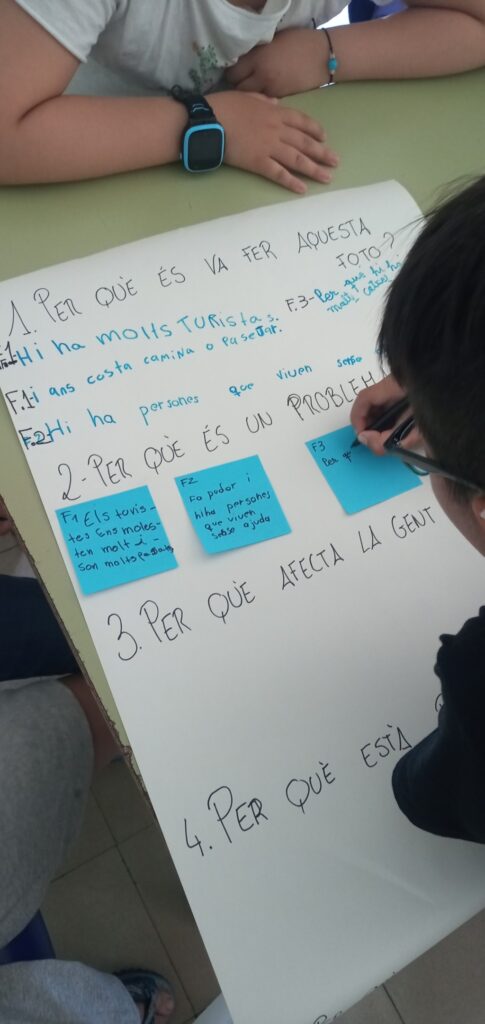 1. PER QUÈ ÉS VA FER AQUESTA
FOTO?
F.1-Hi ha molts TURistas.
F.1-i ans costa camina o pasejar.
F.2-Hi ha persones que viuen sense
F.3-Per què hi ha
molt
2-PER QUÈ ÉS UN PROBLEM
F1 Els turis-
tes Ens moles-
ten molt i
son molts
F2
Fa pudor i
hiha persones
que viuen
sense ajuda
F3
Per què
3. PER QUÈ AFECTA LA GENT
4. PER QUÈ ESTÀ